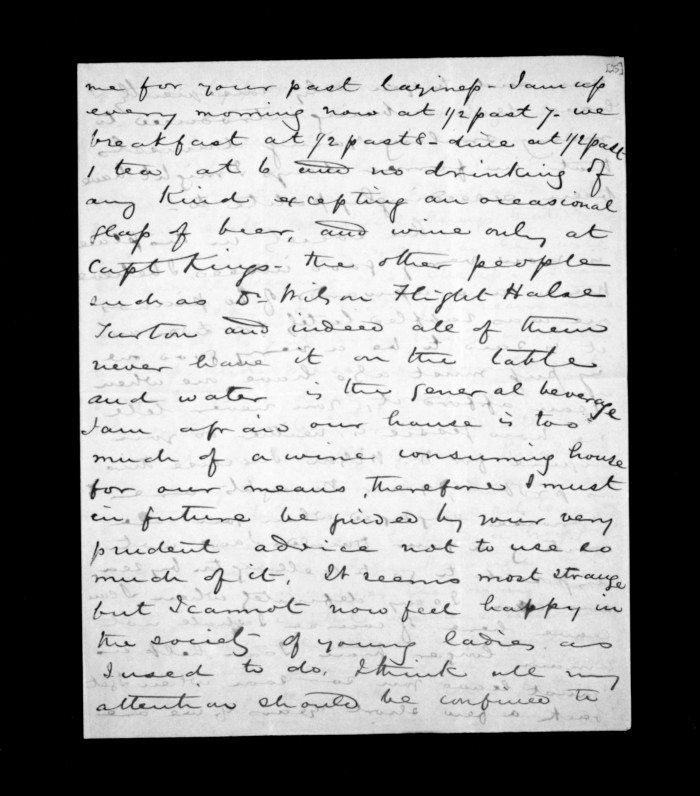 me for your past laziness - I am up
every morning now at 1/2 past 7 - we
breakfast at 1/2 past 8 - dine at 1/2 past
1 tea at 6 and no drinking of
any kind excepting an occasional
glass of beer, and wine only at
Capt Kings - the other people
such as Dr Wilson Flight Halse
Turton and indeed all of them
never have it on the table
and water is the general beverage
I am afraid our house is too
much of a wine consuming house
for our means, therefore I must
in future be guided by your very
prudent advice not to use so
much of it. It seems most strange
but I cannot now feel happy in
the society of young ladies as
I used to do. I think all my
attention should be confined to